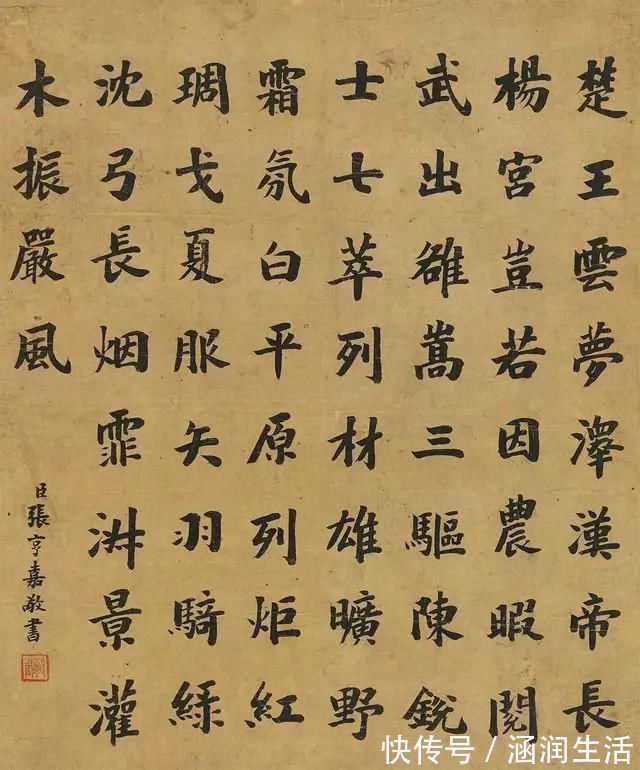 楚王雲夢澤漢帝長
楊宮豈若因農暇閱
武出嵩三驅陳銳
士七萃列材雄曠野
霜氛白平原列炬紅
琱戈夏服矢羽騎綠
沈弓長烟霏景灌
木振嚴風
臣張亨嘉敬書
快传号／涵润生活